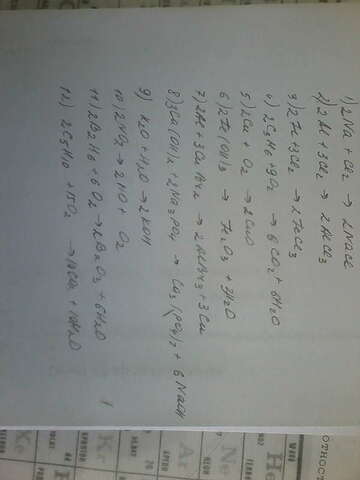 1) 2Na + Cl2 → 2NaCl
2) 2Al + 3Cl2 → 2AlCl3
3) 2Fe + 3Cl2 → 2FeCl3
4) 2C3H6 + 9O2 → 6CO2 + 6H2O
5) 2Cu + O2 → 2CuO
6) 2Fe(OH)3 → Fe2O3 + 3H2O
7) 2Al + 3CuBr2 → 2AlBr3 + 3Cu
8) 3Ca(OH)2 + 2Na3PO4 → Ca3(PO4)2 + 6NaOH
9) K2O + H2O → 2KOH
10) 2NO2 → 2NO + O2
11) 2B2H6 + 6O2 → 2B2O3 + 6H2O
12) 2C5H10 + 15O2 → 10CO2 + 10H2O
ОТНОСТ
He
Ne
НЕОН
Ar
АРГОН
Kr
КРИПТОН
Xe